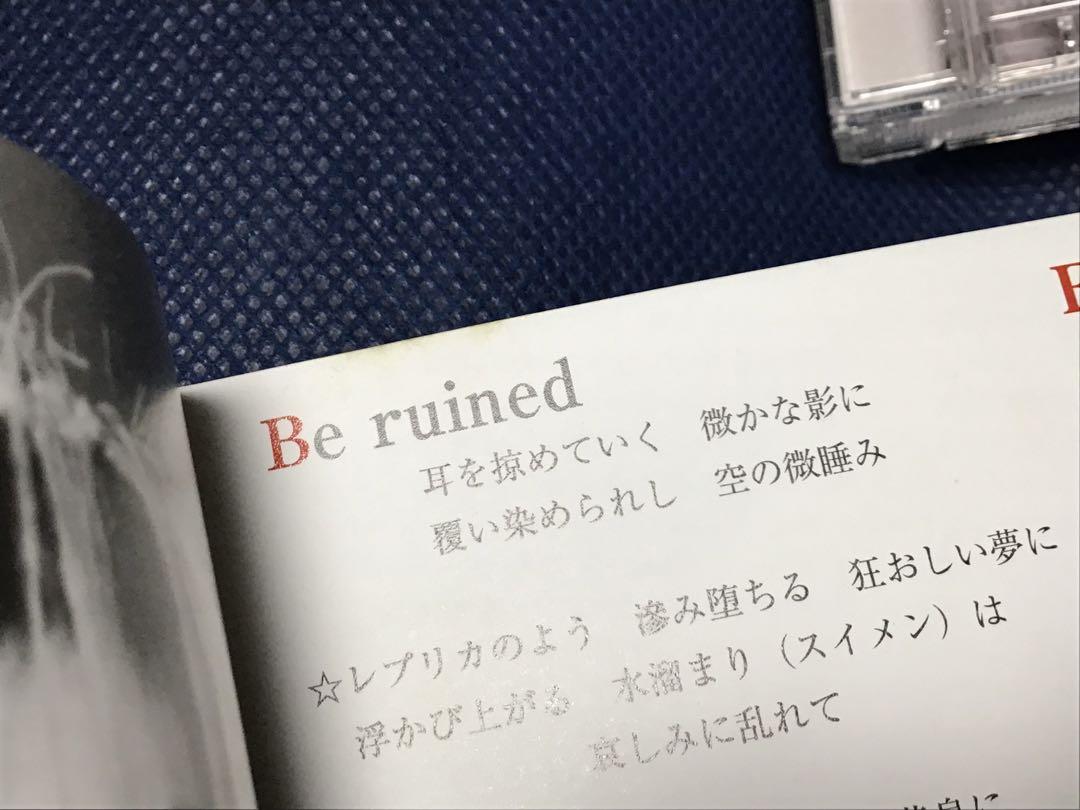 Be ruined
耳を掠めていく　微かな影に
覆い染められし　空の微睡み
☆レプリカのよう　滲み堕ちる　狂おしい夢に
浮かび上がる　水溜まり（スイメン）は
哀しみに乱れて